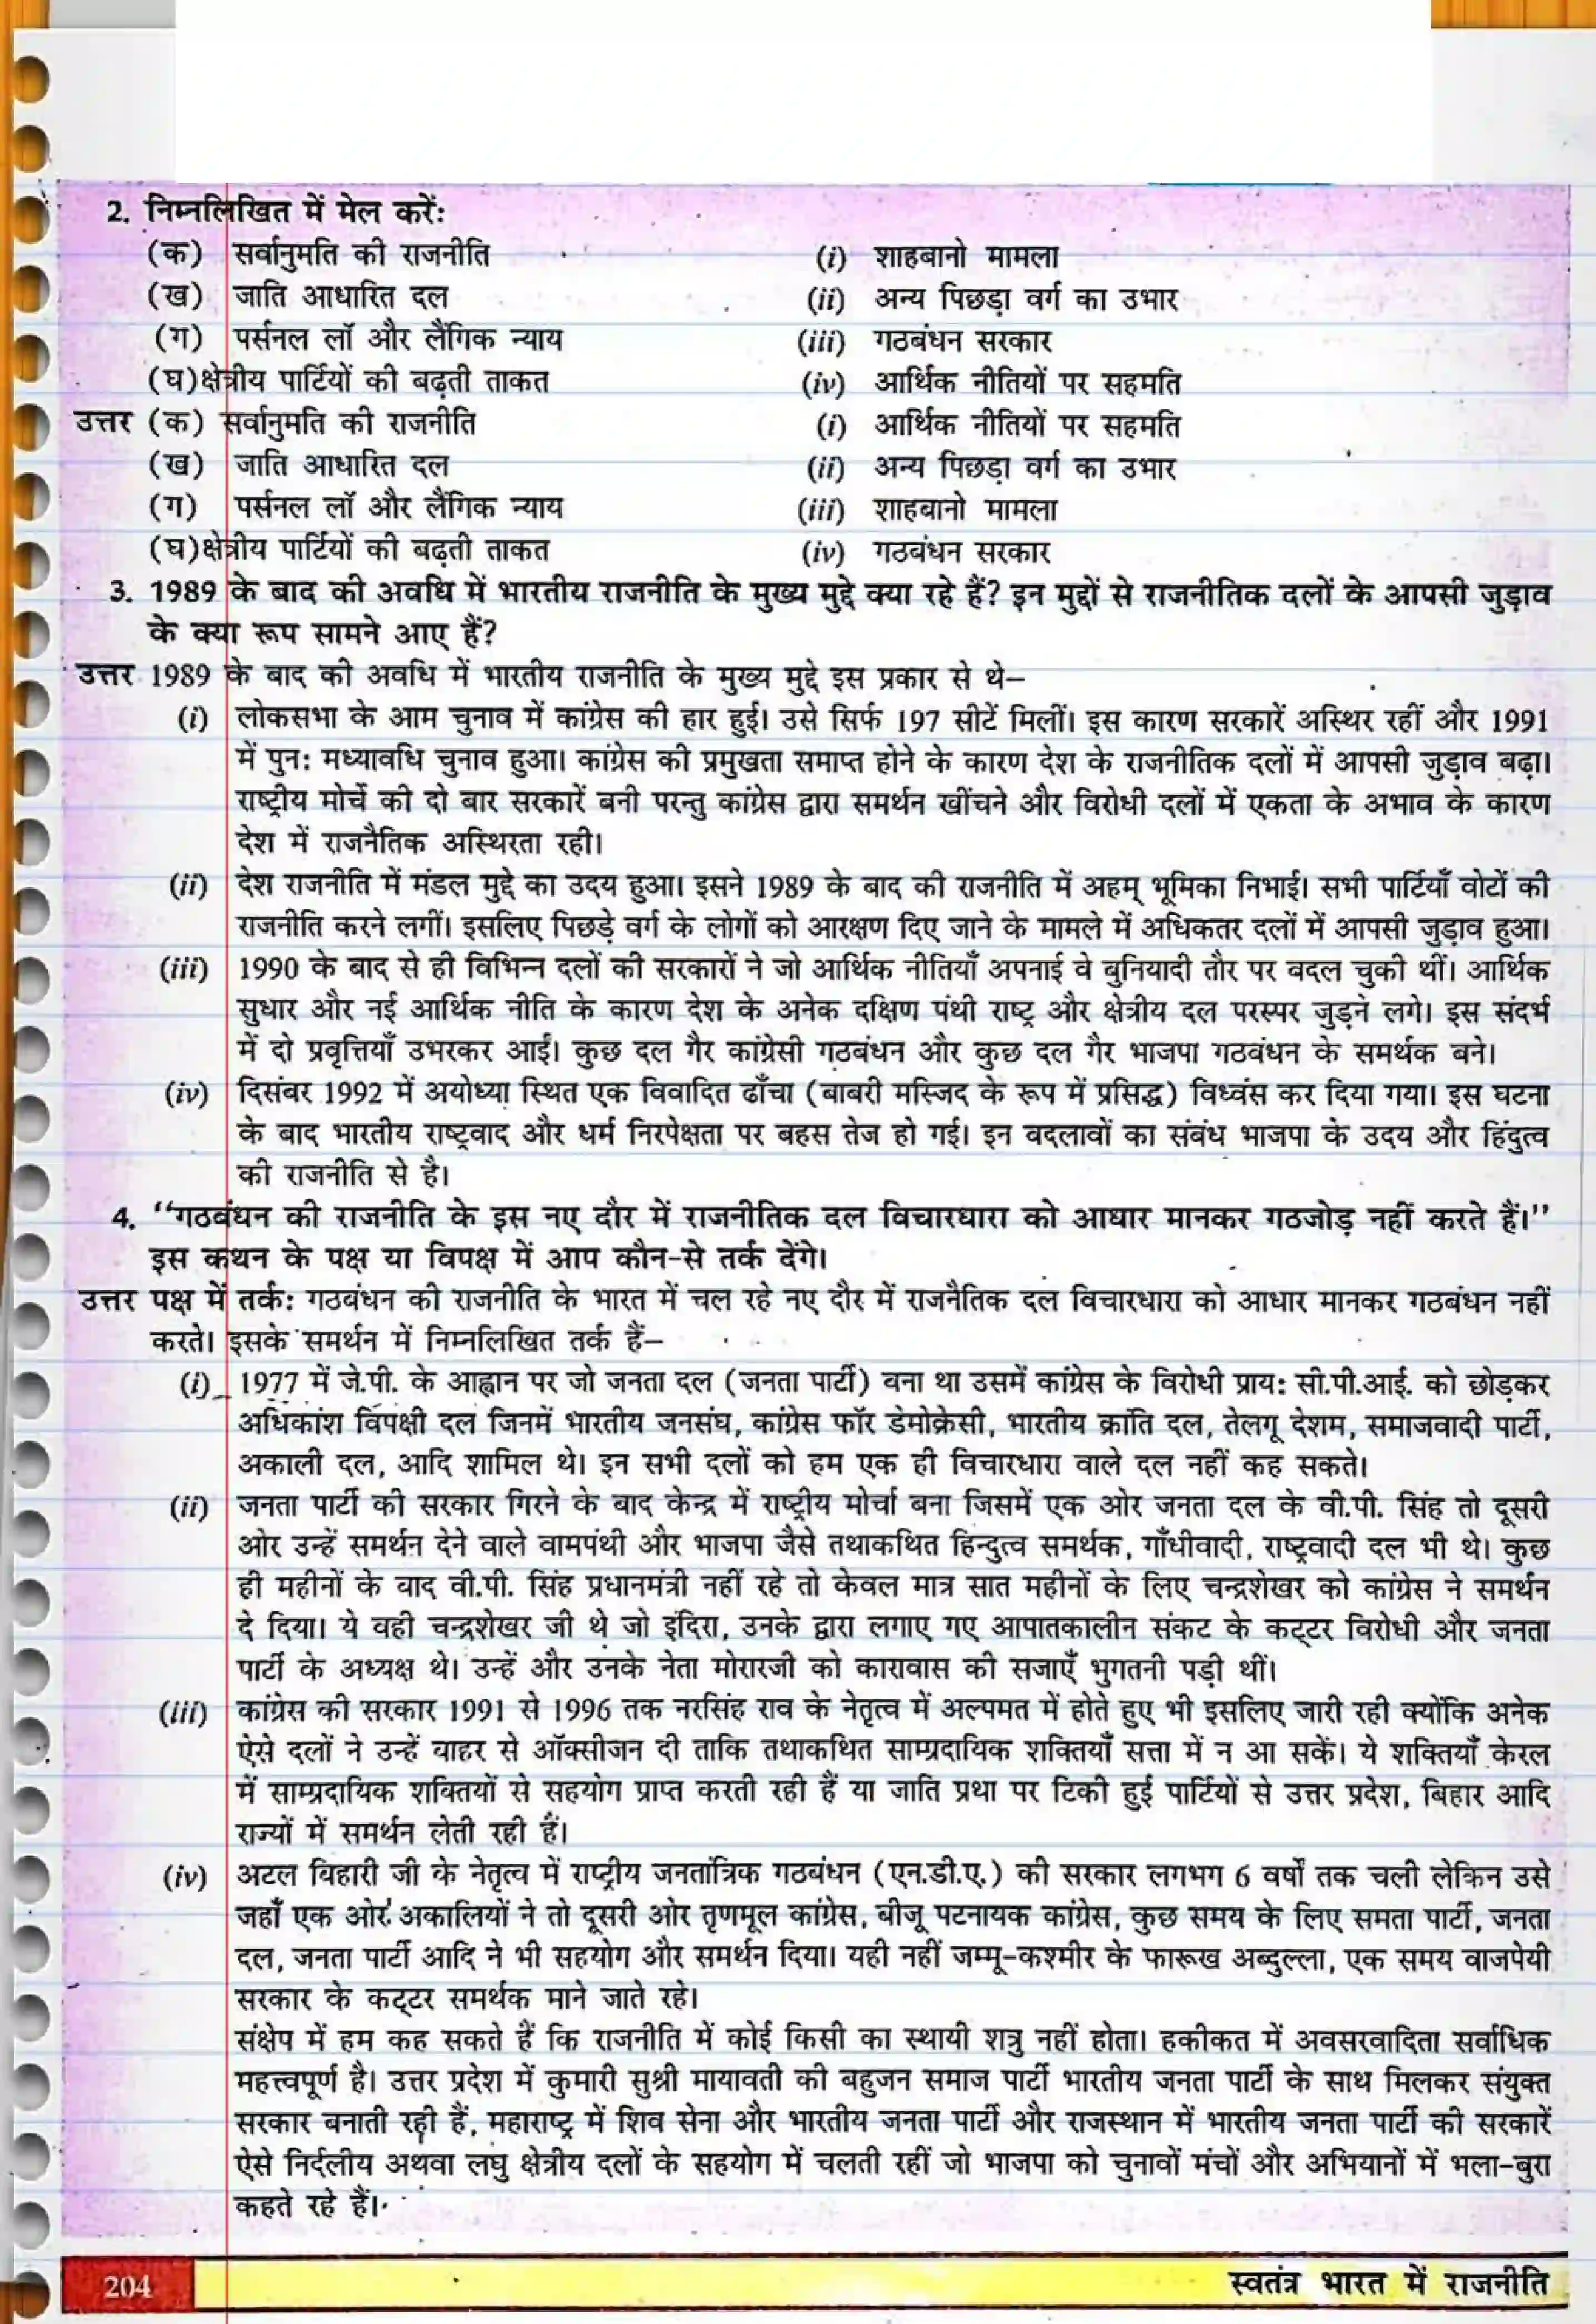 2. निम्नलिखित में मेल करें:
(क) सर्वानुमति की राजनीति (i) शाहबानो मामला
(ख) जाति आधारित दल (ii) अन्य पिछड़ा वर्ग का उभार
(ग) पर्सनल लॉ और लैंगिक न्याय (iii) गठबंधन सरकार
(घ) क्षेत्रीय पार्टियों की बढ़ती ताकत (iv) आर्थिक नीतियों पर सहमति
उत्तर (क) सर्वानुमति की राजनीति (i) आर्थिक नीतियों पर सहमति
(ख) जाति आधारित दल (ii) अन्य पिछड़ा वर्ग का उभार
(ग) पर्सनल लॉ और लैंगिक न्याय (iii) शाहबानो मामला
(घ) क्षेत्रीय पार्टियों की बढ़ती ताकत (iv) गठबंधन सरकार
3. 1989 के बाद की अवधि में भारतीय राजनीति के मुख्य मुद्दे क्या रहे हैं? इन मुद्दों से राजनीतिक दलों के आपसी जुड़ाव
के क्या रूप सामने आए हैं?
उत्तर 1989 के बाद की अवधि में भारतीय राजनीति के मुख्य मुद्दे इस प्रकार से थे–
(i) लोकसभा के आम चुनाव में कांग्रेस की हार हुई। उसे सिर्फ 197 सीटें मिलीं। इस कारण सरकारें अस्थिर रहीं और 1991
में पुन: मध्यावधि चुनाव हुआ। कांग्रेस की प्रमुखता समाप्त होने के कारण देश के राजनीतिक दलों में आपसी जुड़ाव बढ़ा।
राष्ट्रीय मोर्चे की दो बार सरकारें बनी परन्तु कांग्रेस द्वारा समर्थन खींचने और विरोधी दलों में एकता के अभाव के कारण
देश में राजनैतिक अस्थिरता रही।
(ii) देश राजनीति में मंडल मुद्दे का उदय हुआ। इसने 1989 के बाद की राजनीति में अहम् भूमिका निभाई। सभी पार्टियाँ वोटों की
राजनीति करने लगीं। इसलिए पिछड़े वर्ग के लोगों को आरक्षण दिए जाने के मामले में अधिकतर दलों में आपसी जुड़ाव हुआ।
(iii) 1990 के बाद से ही विभिन्न दलों की सरकारों ने जो आर्थिक नीतियाँ अपनाई वे बुनियादी तौर पर बदल चुकी थीं। आर्थिक
सुधार और नई आर्थिक नीति के कारण देश के अनेक दक्षिण पंथी राष्ट्र और क्षेत्रीय दल परस्पर जुड़ने लगे। इस संदर्भ
में दो प्रवृत्तियाँ उभरकर आईं। कुछ दल गैर कांग्रेसी गठबंधन और कुछ दल गैर भाजपा गठबंधन के समर्थक बने।
(iv) दिसंबर 1992 में अयोध्या स्थित एक विवादित ढाँचा (बाबरी मस्जिद के रूप में प्रसिद्ध) विध्वंस कर दिया गया। इस घटना
के बाद भारतीय राष्ट्रवाद और धर्म निरपेक्षता पर बहस तेज हो गई। इन बदलावों का संबंध भाजपा के उदय और हिंदुत्व
की राजनीति से है।
4. ‘‘गठबंधन की राजनीति के इस नए दौर में राजनीतिक दल विचारधारा को आधार मानकर गठजोड़ नहीं करते हैं।’’
इस कथन के पक्ष या विपक्ष में आप कौन-से तर्क देंगे।
उत्तर पक्ष में तर्क: गठबंधन की राजनीति के भारत में चल रहे नए दौर में राजनैतिक दल विचारधारा को आधार मानकर गठबंधन नहीं
करते। इसके समर्थन में निम्नलिखित तर्क हैं–
(i) 1977 में जे.पी. के आह्वान पर जो जनता दल (जनता पार्टी) बना था उसमें कांग्रेस के विरोधी प्राय: सी.पी.आई. को छोड़कर
अधिकांश विपक्षी दल जिनमें भारतीय जनसंघ, कांग्रेस फॉर डेमोक्रेसी, भारतीय क्रांति दल, तेलगू देशम, समाजवादी पार्टी,
अकाली दल, आदि शामिल थे। इन सभी दलों को हम एक ही विचारधारा वाले दल नहीं कह सकते।
(ii) जनता पार्टी की सरकार गिरने के बाद केन्द्र में राष्ट्रीय मोर्चा बना जिसमें एक ओर जनता दल के वी.पी. सिंह तो दूसरी
ओर उन्हें समर्थन देने वाले वामपंथी और भाजपा जैसे तथाकथित हिन्दुत्व समर्थक, गाँधीवादी, राष्ट्रवादी दल भी थे। कुछ
ही महीनों के बाद वी.पी. सिंह प्रधानमंत्री नहीं रहे तो केवल मात्र सात महीनों के लिए चन्द्रशेखर को कांग्रेस ने समर्थन
दे दिया। ये वही चन्द्रशेखर जी थे जो इंदिरा, उनके द्वारा लगाए गए आपातकालीन संकट के कट्टर विरोधी और जनता
पार्टी के अध्यक्ष थे। उन्हें और उनके नेता मोरारजी को कारावास की सजाएँ भुगतनी पड़ी थीं।
(iii) कांग्रेस की सरकार 1991 से 1996 तक नरसिंह राव के नेतृत्व में अल्पमत में होते हुए भी इसलिए जारी रही क्योंकि अनेक
ऐसे दलों ने उन्हें बाहर से ऑक्सीजन दी ताकि तथाकथित साम्प्रदायिक शक्तियाँ सत्ता में न आ सकें। ये शक्तियाँ केरल
में साम्प्रदायिक शक्तियों से सहयोग प्राप्त करती रही हैं या जाति प्रथा पर टिकी हुई पार्टियों से उत्तर प्रदेश, बिहार आदि
राज्यों में समर्थन लेती रही हैं।
(iv) अटल बिहारी जी के नेतृत्व में राष्ट्रीय जनतांत्रिक गठबंधन (एन.डी.ए.) की सरकार लगभग 6 वर्षों तक चली लेकिन उसे
जहाँ एक ओर अकालियों ने तो दूसरी ओर तृणमूल कांग्रेस, बीजू पटनायक कांग्रेस, कुछ समय के लिए समता पार्टी, जनता
दल, जनता पार्टी आदि ने भी सहयोग और समर्थन दिया। यही नहीं जम्मू-कश्मीर के फारूख अब्दुल्ला, एक समय वाजपेयी
सरकार के कट्टर समर्थक माने जाते रहे।
संक्षेप में हम कह सकते हैं कि राजनीति में कोई किसी का स्थायी शत्रु नहीं होता। हकीकत में अवसरवादिता सर्वाधिक
महत्त्वपूर्ण है। उत्तर प्रदेश में कुमारी सुश्री मायावती की बहुजन समाज पार्टी भारतीय जनता पार्टी के साथ मिलकर संयुक्त
सरकार बनाती रही हैं, महाराष्ट्र में शिव सेना और भारतीय जनता पार्टी और राजस्थान में भारतीय जनता पार्टी की सरकारें
ऐसे निर्दलीय अथवा लघु क्षेत्रीय दलों के सहयोग में चलती रहीं जो भाजपा को चुनावों मंचों और अभियानों में भला-बुरा
कहते रहे हैं।
204 स्वतंत्र भारत में राजनीति